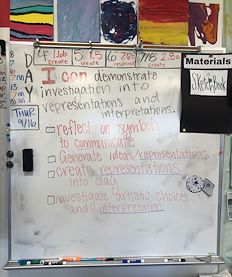 4 Job
create
5 1.5
create
6 7.8.2.a
create
D
A
Y
THUR
9/16
Materials
Sketchbook
I can demonstrate
investigation into
representations and
interpretations.
reflect on symbols
to communicate
Generate ideas/representations
create representations
into clay
investigate artistic choices
and interpretation